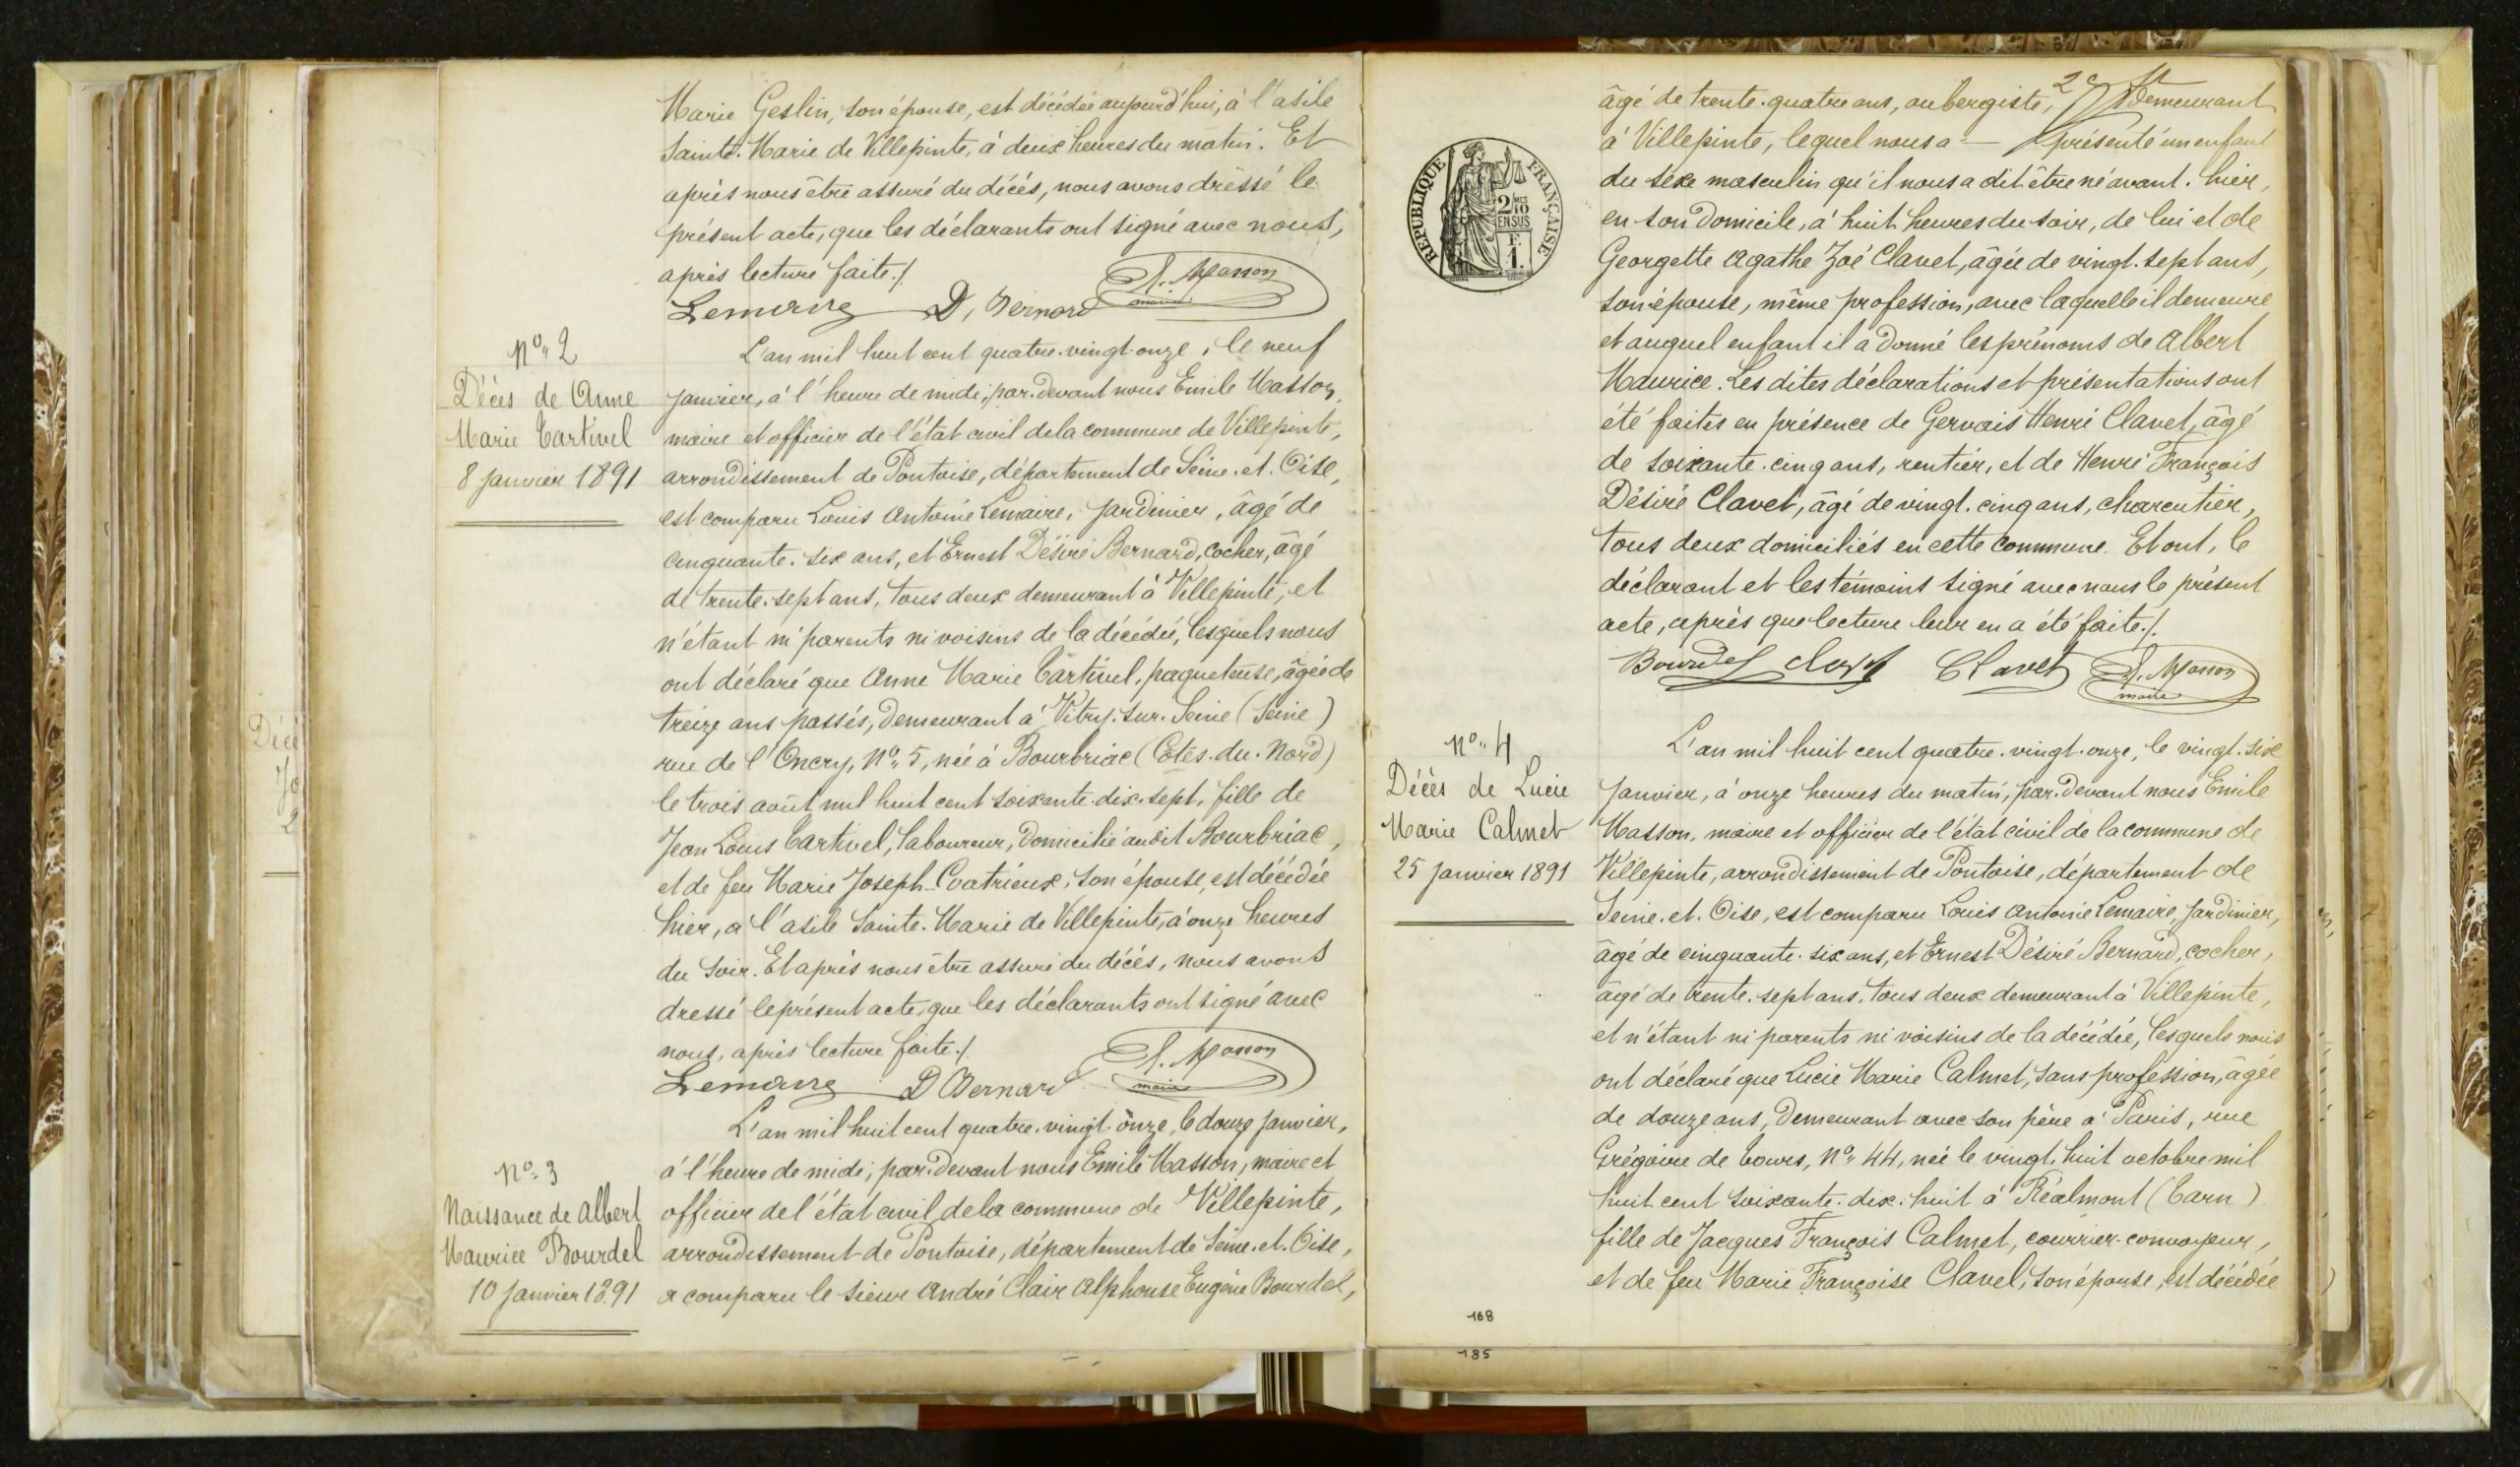 Marie Geslin, son épouse, est décédée aujourd'hui, à l'asile
Sainte. Marie de Villepinte, à deux heures du matin. Et
après nous être assuré du décès, nous avons dressé le
présent acte, que les déclarants ont signé avec nous,
après lecture faite./.
Lemaire D. Bernard E. Masson
maire
N° 2
Décès de Anne
Marie Tartivel
8 Janvier 1891
L'an mil huit cent quatre-vingt-onze, le neuf
Janvier, à l'heure de midi, par-devant nous Emile Masson,
maire et officier de l'état civil de la commune de Villepinte,
arrondissement de Pontoise, département de Seine-et-Oise,
est comparu Louis Antoine Lemaire, Jardinier, âgé de
cinquante-six ans, et Ernest Désiré Bernard, Cocher, âgé
de trente-sept ans, tous deux demeurant à Villepinte, et
n'étant ni parents ni voisins de la décédée, lesquels nous
ont déclaré que Anne Marie Tartivel, paqueteuse, âgée de
treize ans passés, demeurant à Vitry-sur-Seine (Seine)
rue de l'Oncry, N° 5, née à Bourbriac (Côtes-du-Nord)
le trois août mil huit cent soixante-dix-sept, fille de
Jean Louis Tartivel, laboureur, domicilié audit Bourbriac,
et de feu Marie Joseph Coatrieux, son épouse, est décédée
hier, à l'asile Sainte-Marie de Villepinte, à onze heures
du soir. Et après nous être assuré du décès, nous avons
dressé le présent acte, que les déclarants ont signé avec
nous, après lecture faite./.
Lemaire D Bernard E. Masson
maire
N° 3
Naissance de Albert
Maurice Bourdel
10 Janvier 1891
L'an mil huit cent quatre-vingt-onze, le douze Janvier,
à l'heure de midi, par-devant nous Emile Masson, maire et
officier de l'état civil de la commune de Villepinte,
arrondissement de Pontoise, département de Seine-et-Oise,
a comparu le sieur André Clair Alphonse Eugène Bourdel,
REPUBLIQUE FRANÇAISE
2/10 MES
EN SUS
F.
1.
2e
âgé de trente-quatre ans, aubergiste, demeurant
à Villepinte, lequel nous a présenté un enfant
du sexe masculin qu'il nous a dit être né avant-hier,
en son domicile, à huit heures du soir, de lui et de
Georgette Agathe Zoé Clavel, âgée de vingt-sept ans,
son épouse, même profession, avec laquelle il demeure
et auquel enfant il a donné les prénoms de Albert
Maurice. Les dites déclarations et présentations ont
été faites en présence de Gervais Henri Clavel, âgé
de soixante-cinq ans, rentier, et de Henri François
Désiré Clavel, âgé de vingt-cinq ans, charcutier,
tous deux domiciliés en cette commune. Et ont, le
déclarant et les témoins signé avec nous le présent
acte, après que lecture leur en a été faite./.
Bourdel Clavel Clavel E. Masson
maire
N° 4
Décès de Lucie
Marie Calmet
25 Janvier 1891
L'an mil huit cent quatre-vingt-onze, le vingt-six
Janvier, à onze heures du matin, par-devant nous Emile
Masson, maire et officier de l'état civil de la commune de
Villepinte, arrondissement de Pontoise, département de
Seine-et-Oise, est comparu Louis Antoine Lemaire, Jardinier,
âgé de cinquante-six ans, et Ernest Désiré Bernard, cocher,
âgé de trente-sept ans, tous deux demeurant à Villepinte,
et n'étant ni parents ni voisins de la décédée, lesquels nous
ont déclaré que Lucie Marie Calmet, sans profession, âgée
de douze ans, demeurant avec son père à Paris, rue
Grégoire de Tours, N° 44, née le vingt-huit octobre mil
huit cent soixante-dix-huit à Réalmont (Tarn)
fille de Jacques François Calmet, courrier-convoyeur,
et de feu Marie Françoise Clavel, son épouse, est décédée
168
185